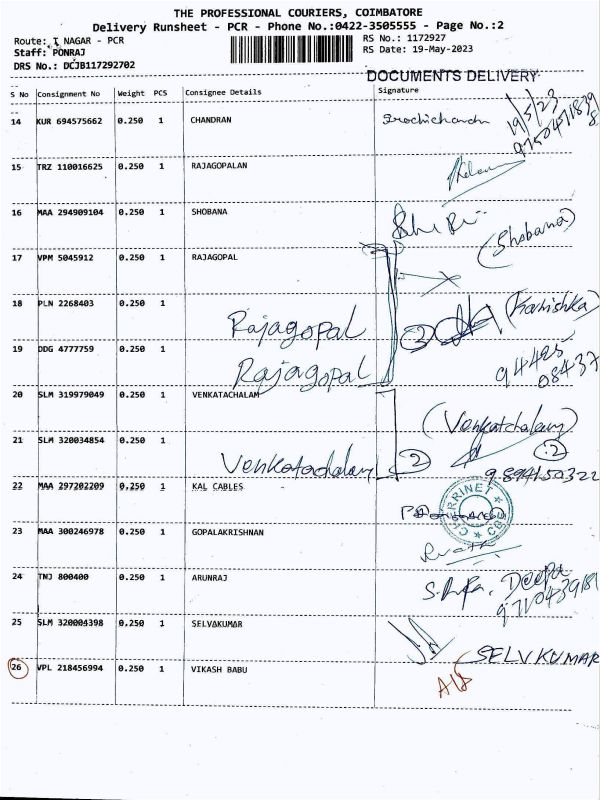 THE PROFESSIONAL COURIERS, COIMBATORE
Delivery Runsheet - PCR - Phone No.:0422-3505555 - Page No.:2
Route: T NAGAR - PCR
RS No.: 1172927
Staff: PONRAJ
RS Date: 19-May-2023
DRS No.: DCJB117292702
DOCUMENTS DELIVERY
S No Consignment No Weight PCS Consignee Details Signature
14 KUR 694575662 0.250 1 CHANDRAN
19/5/23
15 TRZ 110016625 0.250 1 RAJAGOPALAN
16 MAA 294909104 0.250 1 SHOBANA
(Shobana)
17 VPM 5045912 0.250 1 RAJAGOPAL
18 PLN 2268403 0.250 1
Rajagopal 2 (Kanishka)
19 DDG 4777759 0.250 1
Rajagopal
94425
08437
20 SLM 319979049 0.250 1 VENKATACHALAM
(Venkatchalam)
21 SLM 320034854 0.250 1
Venkatachalam 2 2
9894150322
22 MAA 297202209 0.250 1 KAL CABLES
CHERRINET CBE
23 MAA 300246978 0.250 1 GOPALAKRISHNAN
24 TNJ 800400 0.250 1 ARUNRAJ
Deepa
25 SLM 320004398 0.250 1 SELVAKUMAR
SELVKUMAR
26 VPL 218456994 0.250 1 VIKASH BABU